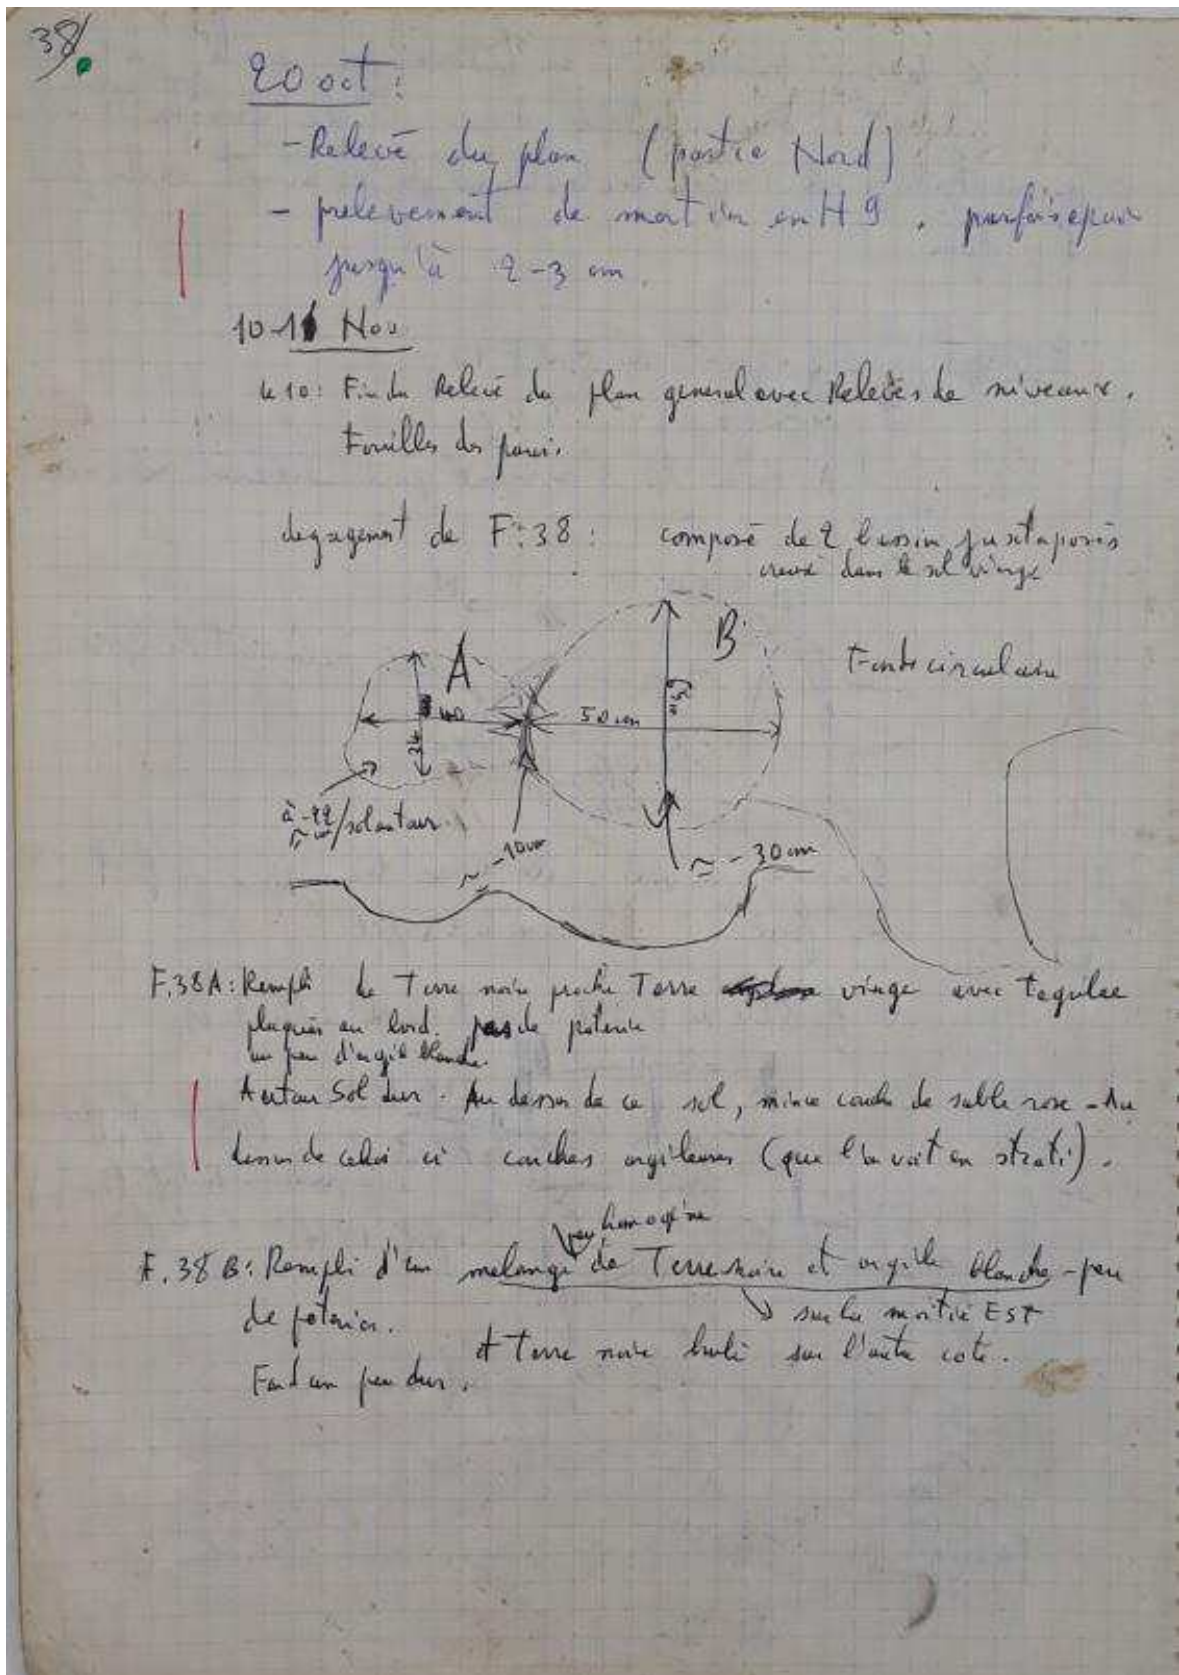 38/.
20 oct :
- Relevé du plan (partie Nord)
- prelevement de mortier en H9, parfois epais
jusqu'à 2-3 cm.
10-11 Nov
Le 10: Fin du Relevé du plan general avec Relevés de niveaux.
Fouilles des parois.
degagement de F.38 : composé de 2 bassin juxtaposés
creusé dans le sol vierge
A
B
Fonds circulaire
40
34
50 cm
à -22 cm/sol autour
≃ -10cm
≃ -30 cm
F.38A: Rempli de Terre noire proche Terre vierge avec tegulae
plaquées au bord. pas de poterie
un peu d'argile blanche.
Autour Sol dur. Au dessus de ce sol, mince couche de sable rose - Au
dessus de celui ci couches argileuses (que l'on voit en strati).
peu homogène
F.38 B: Rempli d'un melange de Terre noire et argile blanche - peu
de poteries. sur la moitié EST
et Terre noire brulé sur l'autre coté.
Fond un peu dur.